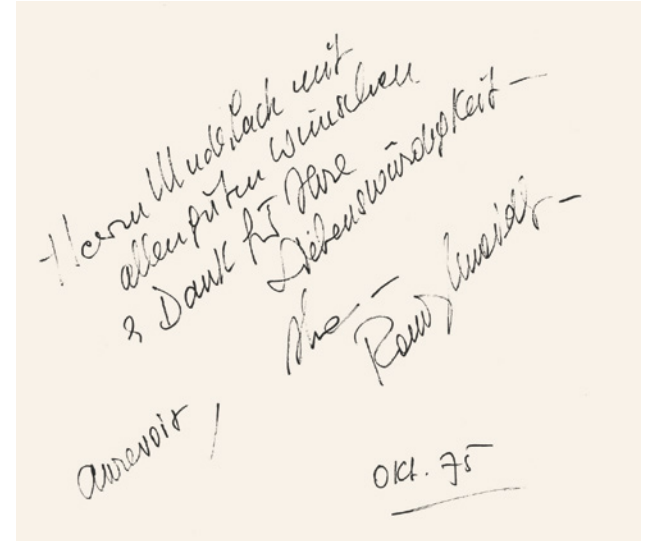 Herrn Mudelsack mit
allen guten Wünschen
& Dank für Ihre
Liebenswürdigkeit –
Ihre –
Romy Schneider –
aurevoir,
Okt. 75